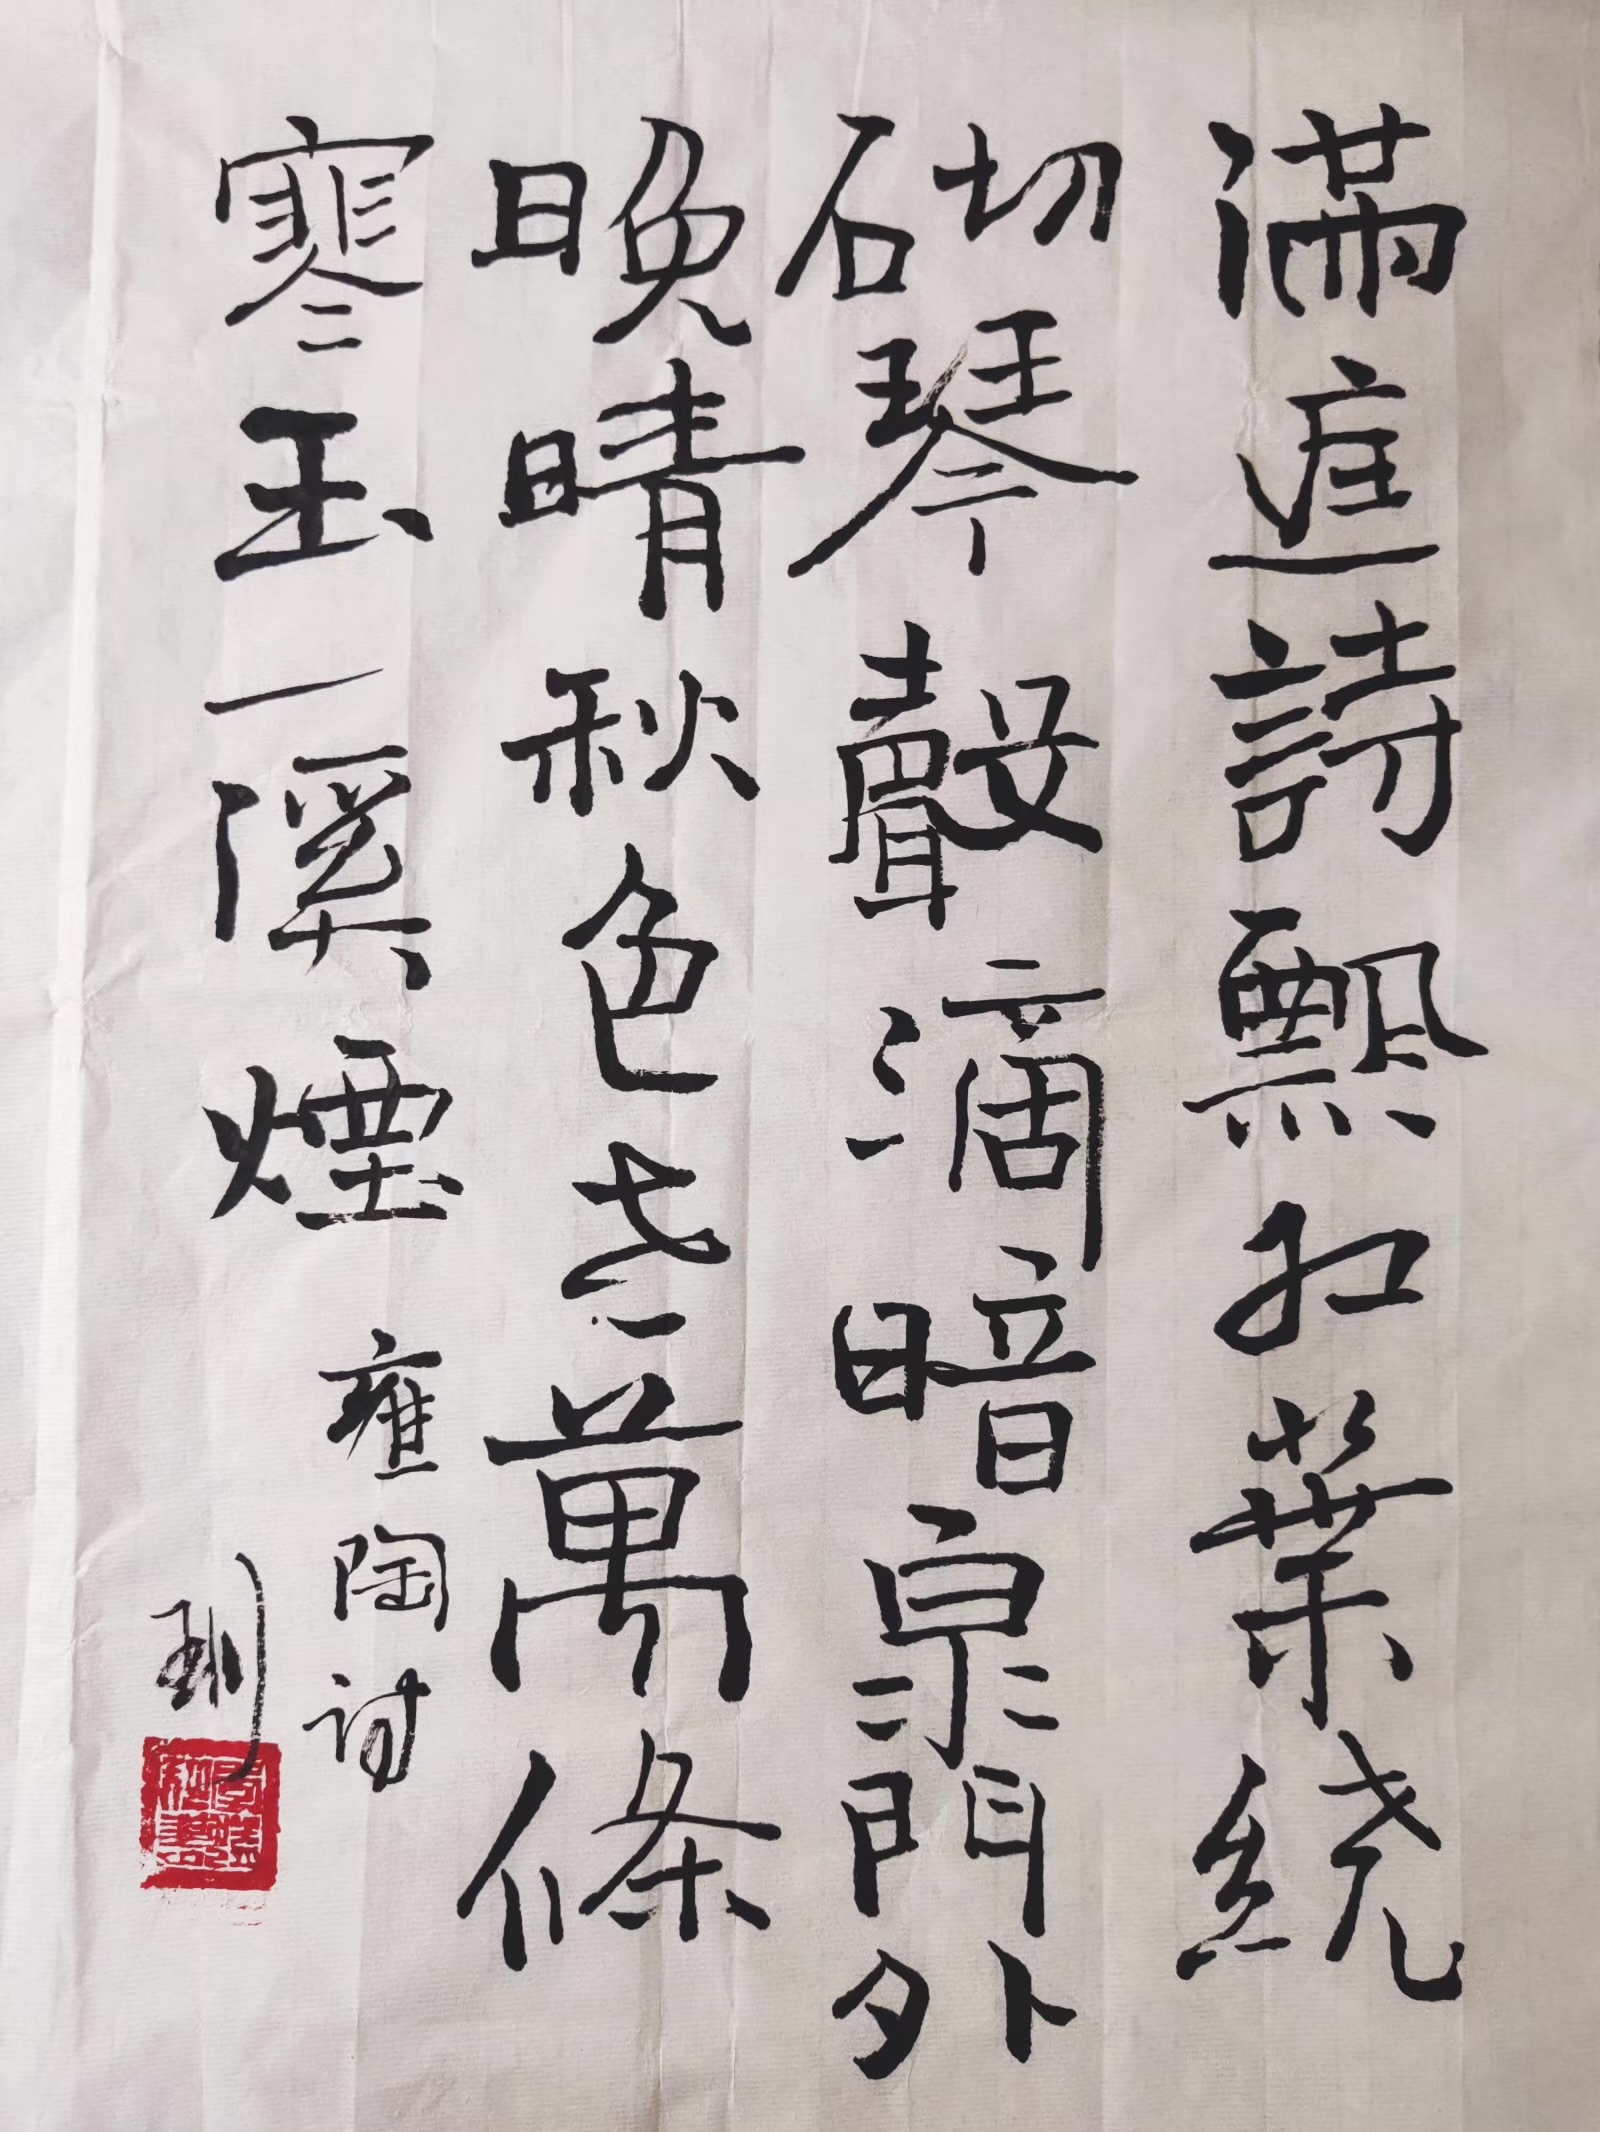 滿庭詩飄紅葉繞
砌琴聲滴暗泉門外
晚晴秋色老萬條
寒玉一溪煙
雍陶詩